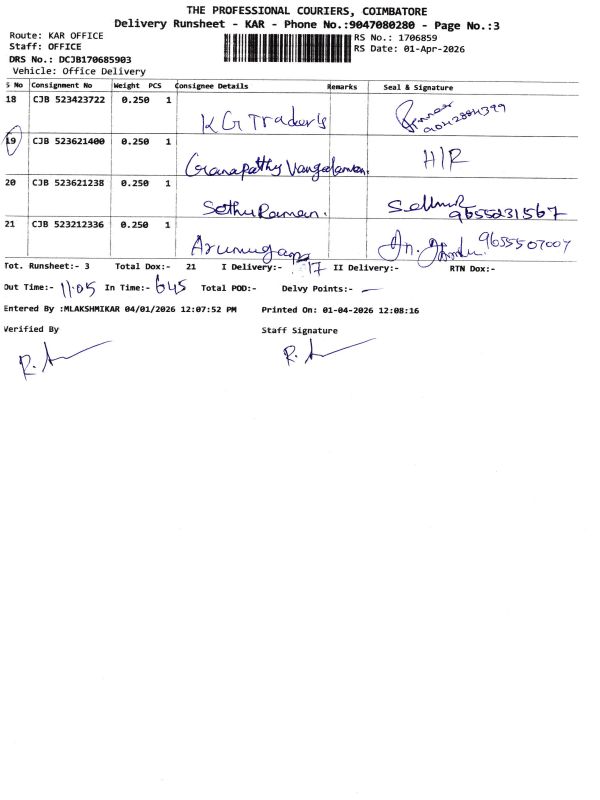 THE PROFESSIONAL COURIERS, COIMBATORE
Delivery Runsheet - KAR - Phone No.:9047080280 - Page No.:3
Route: KAR OFFICE
RS No.: 1706859
Staff: OFFICE
RS Date: 01-Apr-2026
DRS No.: DCJB170685903
Vehicle: Office Delivery
S No Consignment No Weight PCS Consignee Details Remarks Seal & Signature
18 CJB 523423722 0.250 1
KG Traders
19 CJB 523621400 0.250 1
Ganapathy H/R
20 CJB 523621238 0.250 1
SethuRaman. 9655231567
21 CJB 523212336 0.250 1
Arumugam 9655507007
Tot. Runsheet:- 3 Total Dox:- 21 I Delivery:- 17 II Delivery:- RTN Dox:-
Out Time:- 11.05 In Time:- 6.45 Total POD:- Delvy Points:- —
Entered By :MLAKSHMIKAR 04/01/2026 12:07:52 PM Printed On: 01-04-2026 12:08:16
Verified By Staff Signature